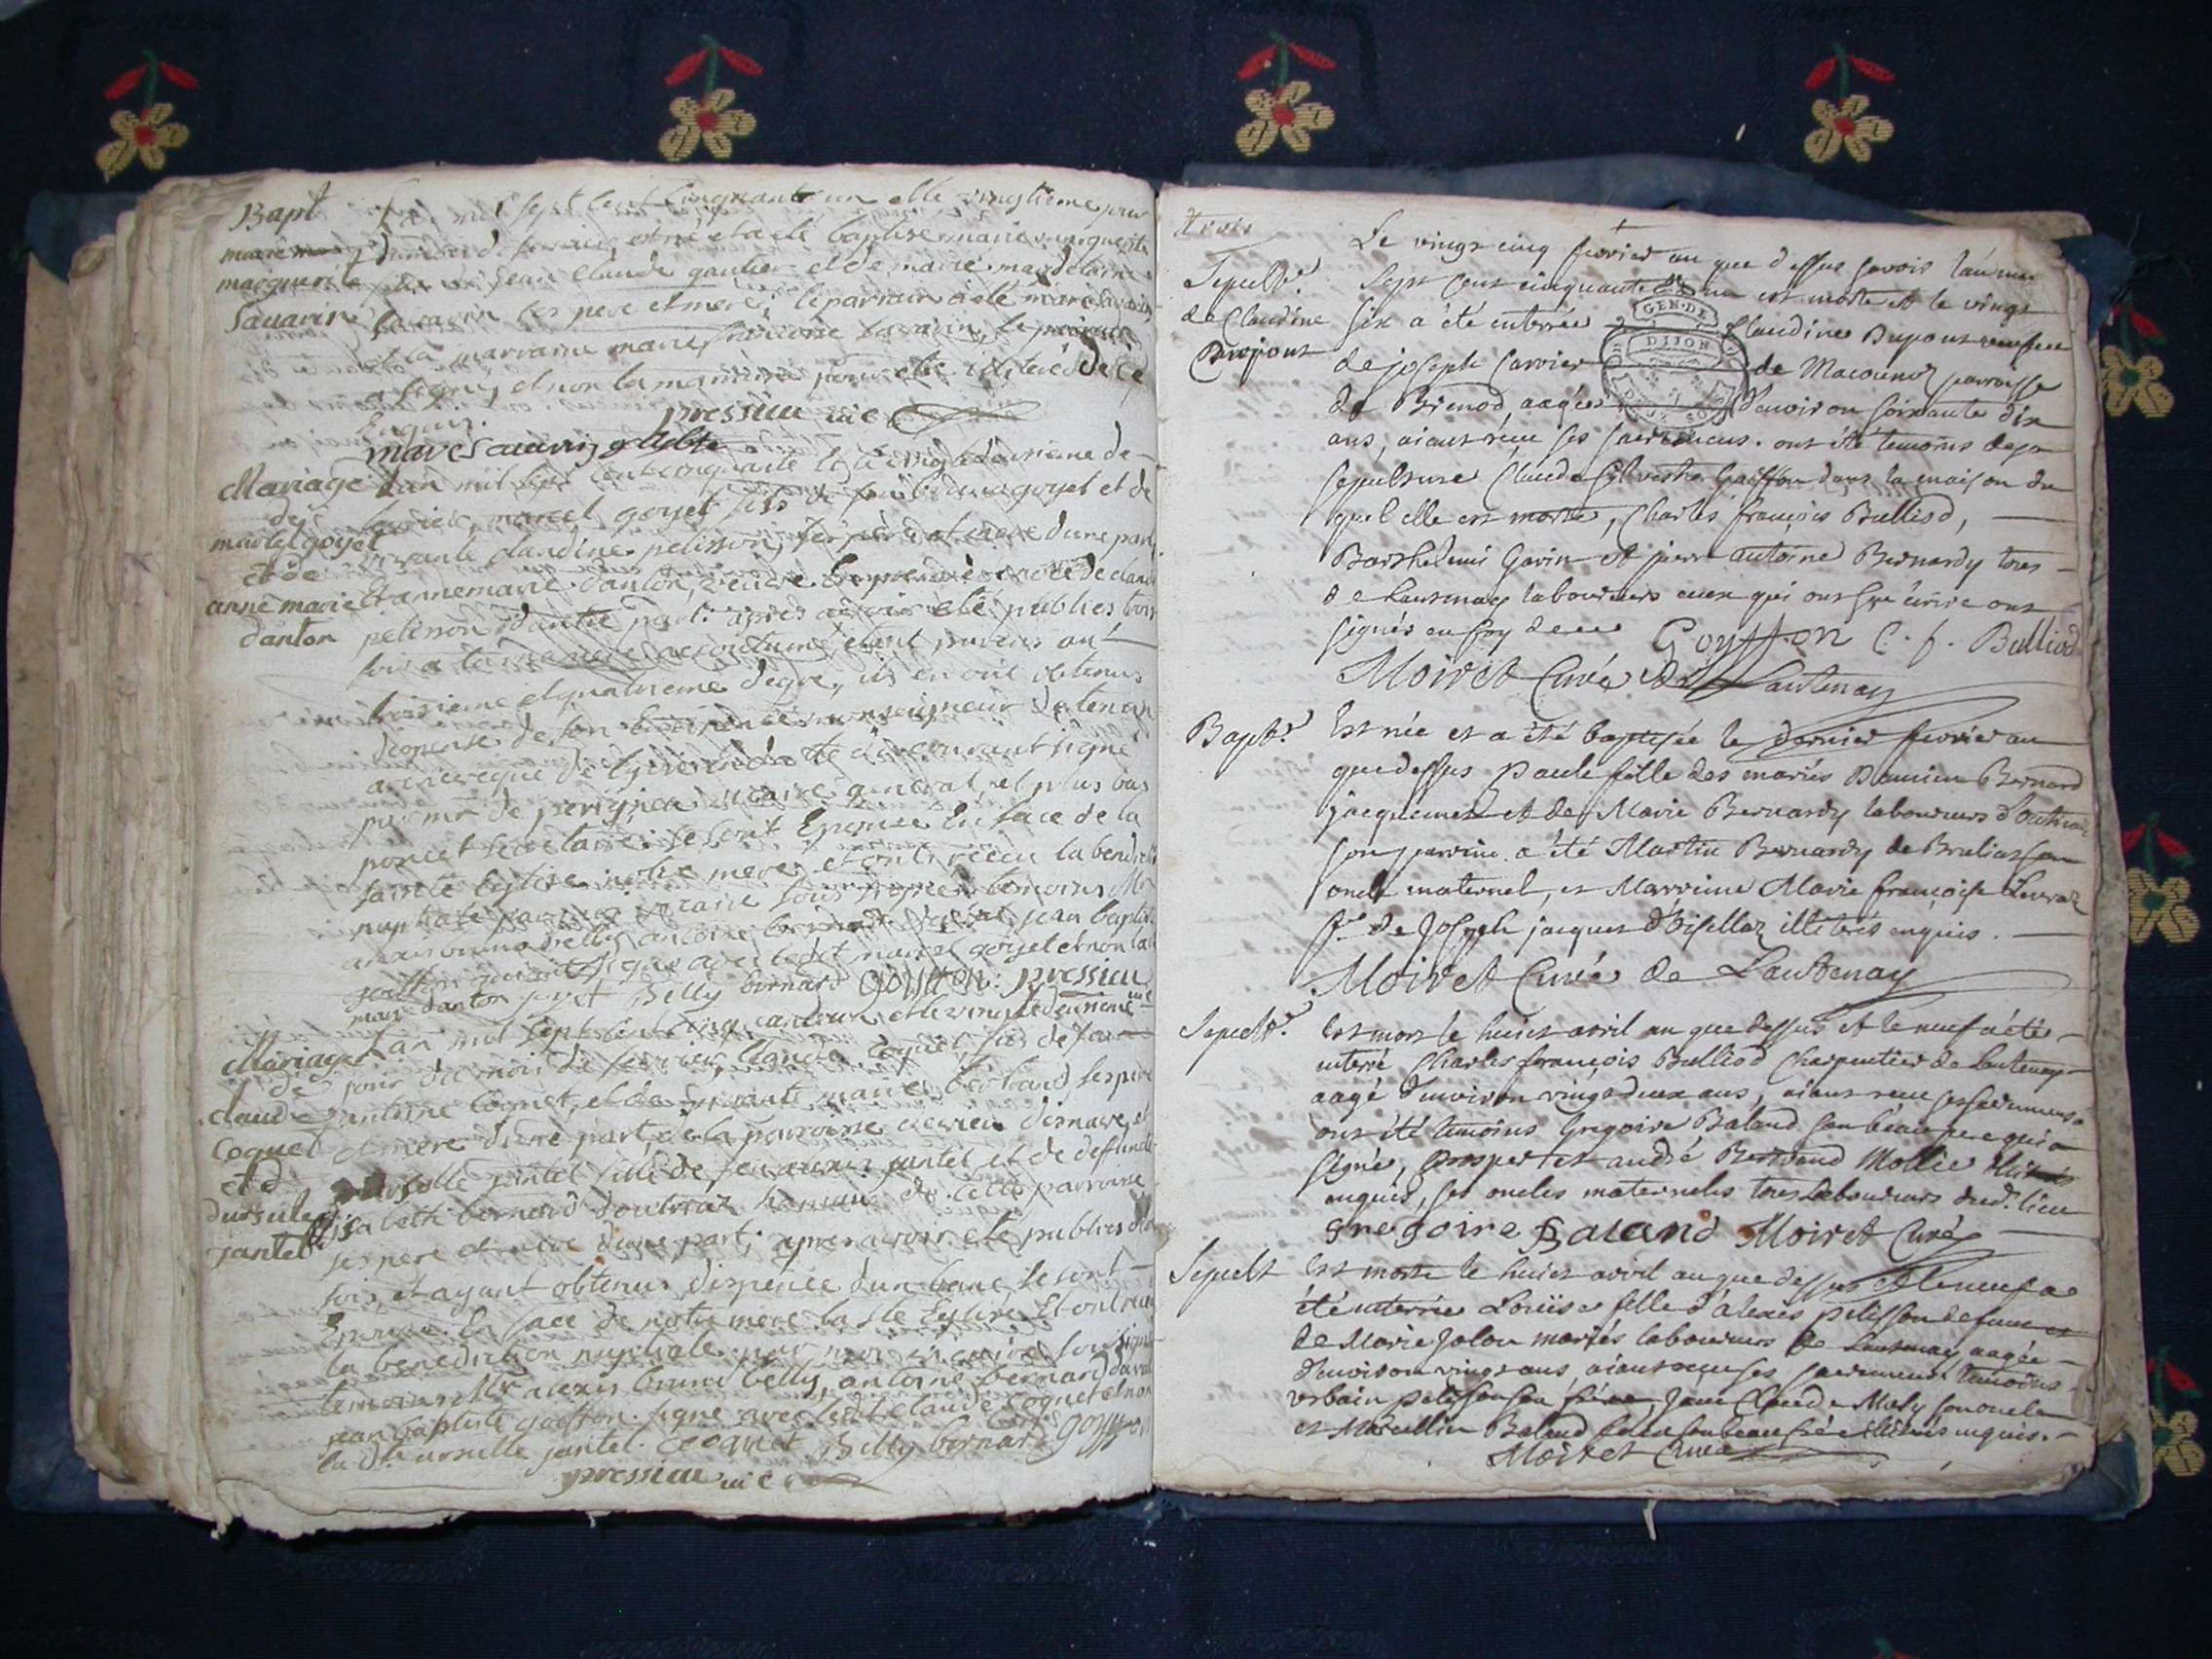 Bapt
marie
marguerite
Savarin
mil sept cent cinquante un et le vingtieme jour
du mois de fevrier est né et a été baptisé marie marguerite
jean claude gautier et de marie magdelaine
savarin ses pere et mere, le parrain a été marc savarin
et la marraine marie francoise savarin, le parrain
a signé, et non la marraine pour etre illiteré de ce
enquis.
pressieu vic
marc savarin
Mariage
de
marcel goyet
et de
anne marie
danton
L'an mil sept cent cinquante le vingt deuxieme de
fevrier, marcel goyet fils de feu goyet et de
vivante claudine pelisson, ses père et mere d'une part
et annemarie danton, veuve en premiere noce de claude
pelisson d'autre part: après avoir été publiés trois
fois a la maniere accoutumé étant parens au
troisieme et quatrieme degré, ils en ont obtenus
dispense de son monseigneur de tencin
archeveque de lyon du courant signé
par mr de perignon vicaire general, et plus bas
poncet secretaire: se sont epousée en face de la
sainte eglise notre mere, et ont receu la benedict
nuptiale par moi vicaire sous signé temoins Mr
belly antoine bernard jean baptiste
goiffon qui ont signé avec ledit marcel goyet et non la
mari danton goyet Belly bernard goyffon: pressieu
vic
Mariage
de
claude
Coquet
et d
dursule
jantel
L'an mil sept cent cinquante un et le vingt deuxieme
jour du mois de fevrier, Claude Coquet, fils de feu
antoine Coquet, et de vivante marie bertrand ses pere
et mere d'une part, de la parroisse de vieu disenave, et
ursulle jantel fille de feu alexis jantel et de deffuncte
elisabeth bernard d'outriaz hameau de cette parroisse
ses pere et mere d'une part; apres avoir été publiés
fois, et ayant obtenus dispense d'un banc, se sont
epousé en face de notre mere la Ste Eglise et ont receu
la benediction nuptiale par moi vicaire soussigné
temoins Mr alexis bruno belly, antoine bernard
jean baptiste goiffon. signé avec ledit claude coquet et non
la dt ursulle jantel. Cocquet Belly bernard goyffon
pressieu vic
trois
Sepult.
de Claudine
Dupont
Le vingt cinq fevrier an que dessus savoir l'an mil
sept cent cinquante un est morte et le vingt
six a été enterrée Claudine Dupont veuve
de joseph Carrier de Maconod parroisse
de Brenod, aagée d'environ soixante dix
ans, aiant reçue ses sacremens. ont été temoins de sa
sepulture Claude Silvestre Goiffon dans la maison du
quel elle est morte, Charles françois Bulliod,
Barthelemi Gavin et pierre antoine Bernardy tous
de Lantenay laboureurs ceux qui ont sçu écrire ont
signés en foy de ce Goyffon C. f. Bulliod
Moiret Curé de Lantenay
Bapt.
Est née et a été baptisée le dernier fevrier an
que dessus Paule fille des mariés Damien Bernard
jacquemet et de Marie Bernardy laboureurs d'Outriaz
son parrain a été Martin Bernardy de Bruliat son
oncle maternel, et Marrine Marie françoise Levrat
fe de Joseph jacques d'Isellaz illiterés enquis.
Moiret Curé de Lantenay
Sepult.
Est mort le huict avril an que dessus et le neuf a été
interré Charles françois Bulliod Charpentier de Lantenay
aagé d'environ vingt deux ans, aiant receu ses sacremens
ont été temoins Gregoire Baland son beau pere qui a
signé, prosper et andré Bertrand Mollie illiterés
enquis, ses oncles maternels tous Laboureurs dud. lieu
gregoire Baland Moiret Curé
Sepult
Est morte le huict avril an que dessus et le neuf a
été enterrée Louïse fille d'alexis pelisson defunt et
de Marie Jolon mariés laboureurs de Lantenay aagée
d'environ vingt ans, aiant receu ses sacremens temoins
urbain pelisson son frére, Jean Claude Maly son oncle
et Marcellin Baland son beau frére illiterés enquis.
Moiret Curé